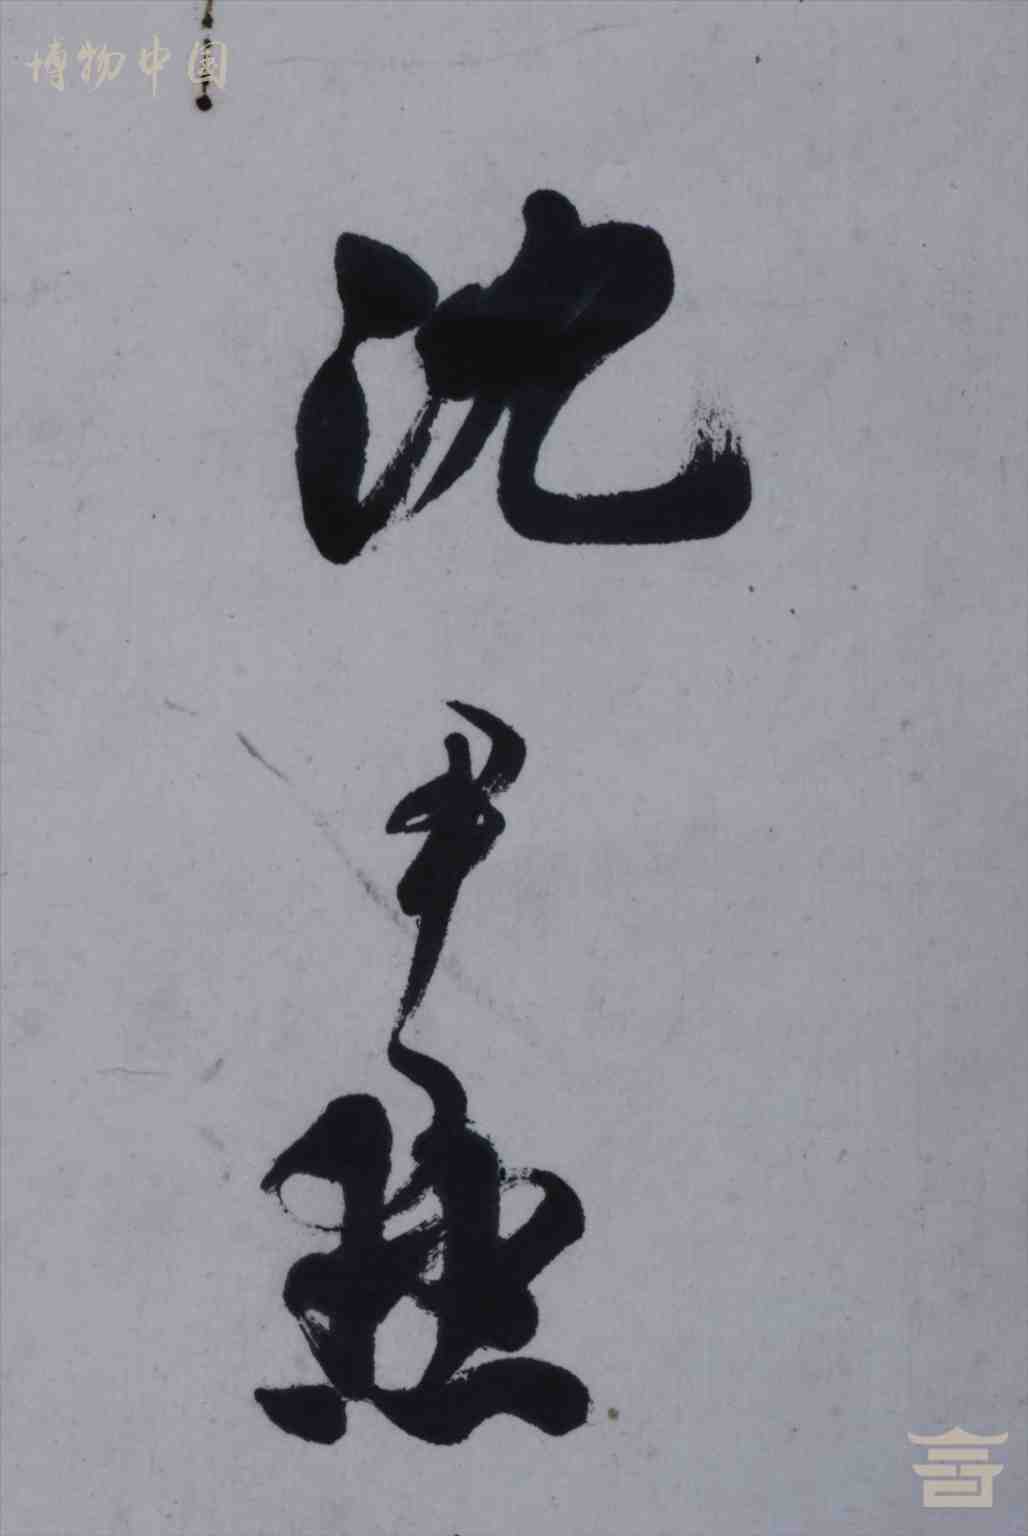 博物中国
沈尹默